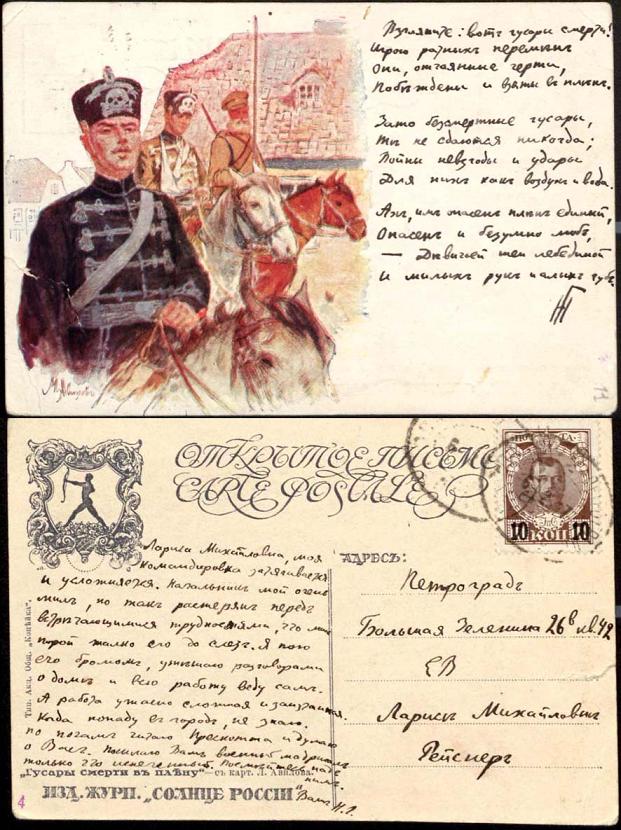 Взгляните: вотъ гусары смерти!
Игрою ратныхъ перемѣнъ
Они, отчаянные черти,
Побѣждены и взяты въ плѣнъ.
Зато безсмертные гусары,
Тѣ не сдаются никогда;
Войны невзгоды и удары
Для нихъ какъ воздухъ и вода.
Ахъ, имъ опасенъ плѣнъ единый,
Опасенъ и безумно любъ,
— Дѣвичьей шеи лебединой
И милыхъ рукъ и алыхъ губъ.
НГ
М. Авиловъ
11
ОТКРЫТОЕ ПИСЬМО
CARTE POSTALE
ПОЧТА
10 КОП 10
Лариса Михайловна, моя
командировка затягивается
и усложняется. Начальникъ мой очень
милъ, но такъ растерянъ передъ
встрѣчающимися трудностями, что мнѣ
порой жалко его до слезъ. Я пою
его бромомъ, утѣшаю разговорами
о домѣ и всю работу веду самъ.
А работа ужасно сложная и запутанная.
Когда попаду въ городъ, не знаю.
По ночамъ читаю Прескотта и думаю
о Васъ. Посылаю Вамъ военный мадригалъ,
только что испеченный. Посмѣйтесь надъ
нимъ.
Вашъ Н.Г.
АДРЕСЪ:
Петроградъ
Большая Зеленина 26в кв. 42
ЕВ
Ларисѣ Михайловнѣ
Рейснеръ
Тип. Акц. Общ. „Копѣйка".
„Гусары смерти въ плѣну"—съ карт. Л. Авилова.
ИЗД. ЖУРН. „СОЛНЦЕ РОССІИ"
4